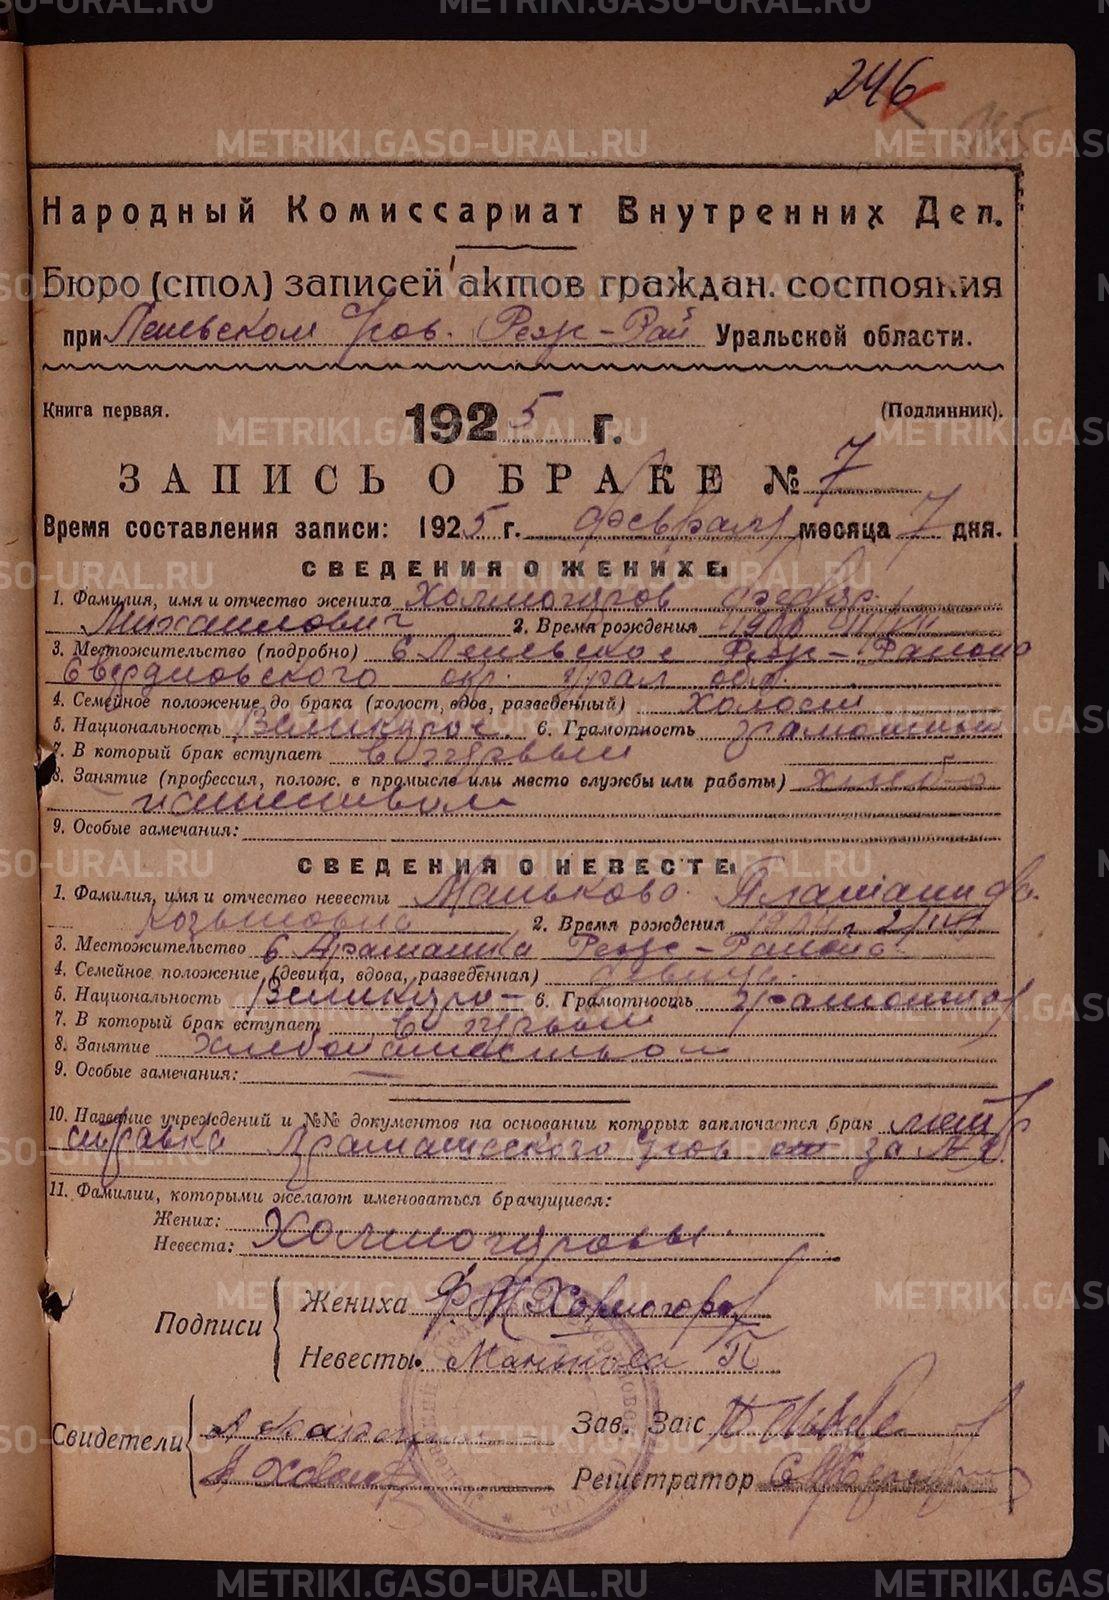 246
Народный Комиссариат Внутренних Дел.
Бюро (стол) записей актов граждан. состояния
при Леневском Реж-Рай Уральской области.
Книга первая. 1925 г. (Подлинник).
ЗАПИСЬ О БРАКЕ № 7
Время составления записи: 1925 г. февраля месяца 7 дня.
СВЕДЕНИЯ О ЖЕНИХЕ:
1. Фамилия, имя и отчество жениха Холмогоров Федор
Михаилович 2. Время рождения
3. Местожительство (подробно) с Леневское Реж-Района
Свердловского окр. Урал обл.
4. Семейное положение до брака (холост, вдов, разведенный) холост
5. Национальность Великорос. 6. Грамотность грамотный
7. В который брак вступает в первый
8. Занятие (профессия, полож. в промысле или место службы или работы) хлебо
пашеством
9. Особые замечания:
СВЕДЕНИЯ О НЕВЕСТЕ:
1. Фамилия, имя и отчество невесты Манькова
Козьмовна 2. Время рождения
3. Местожительство с Арамашка Реж-Района
4. Семейное положение (девица, вдова, разведенная) девица
5. Национальность Великоро- 6. Грамотность грамотная
7. В который брак вступает в первый
8. Занятие хлебопашеством
9. Особые замечания:
10. Название учреждений и №№ документов на основании которых заключается брак
справка Арамашеского за №
11. Фамилии, которыми желают именоваться брачущиеся:
Жених:
Невеста: Холмогоровы
Подписи
Жениха Ф. М Холмогоров
Невесты. Манькова П
Свидетели
Зав. Загс
Регистратор
METRIKI.GASO-URAL.RU